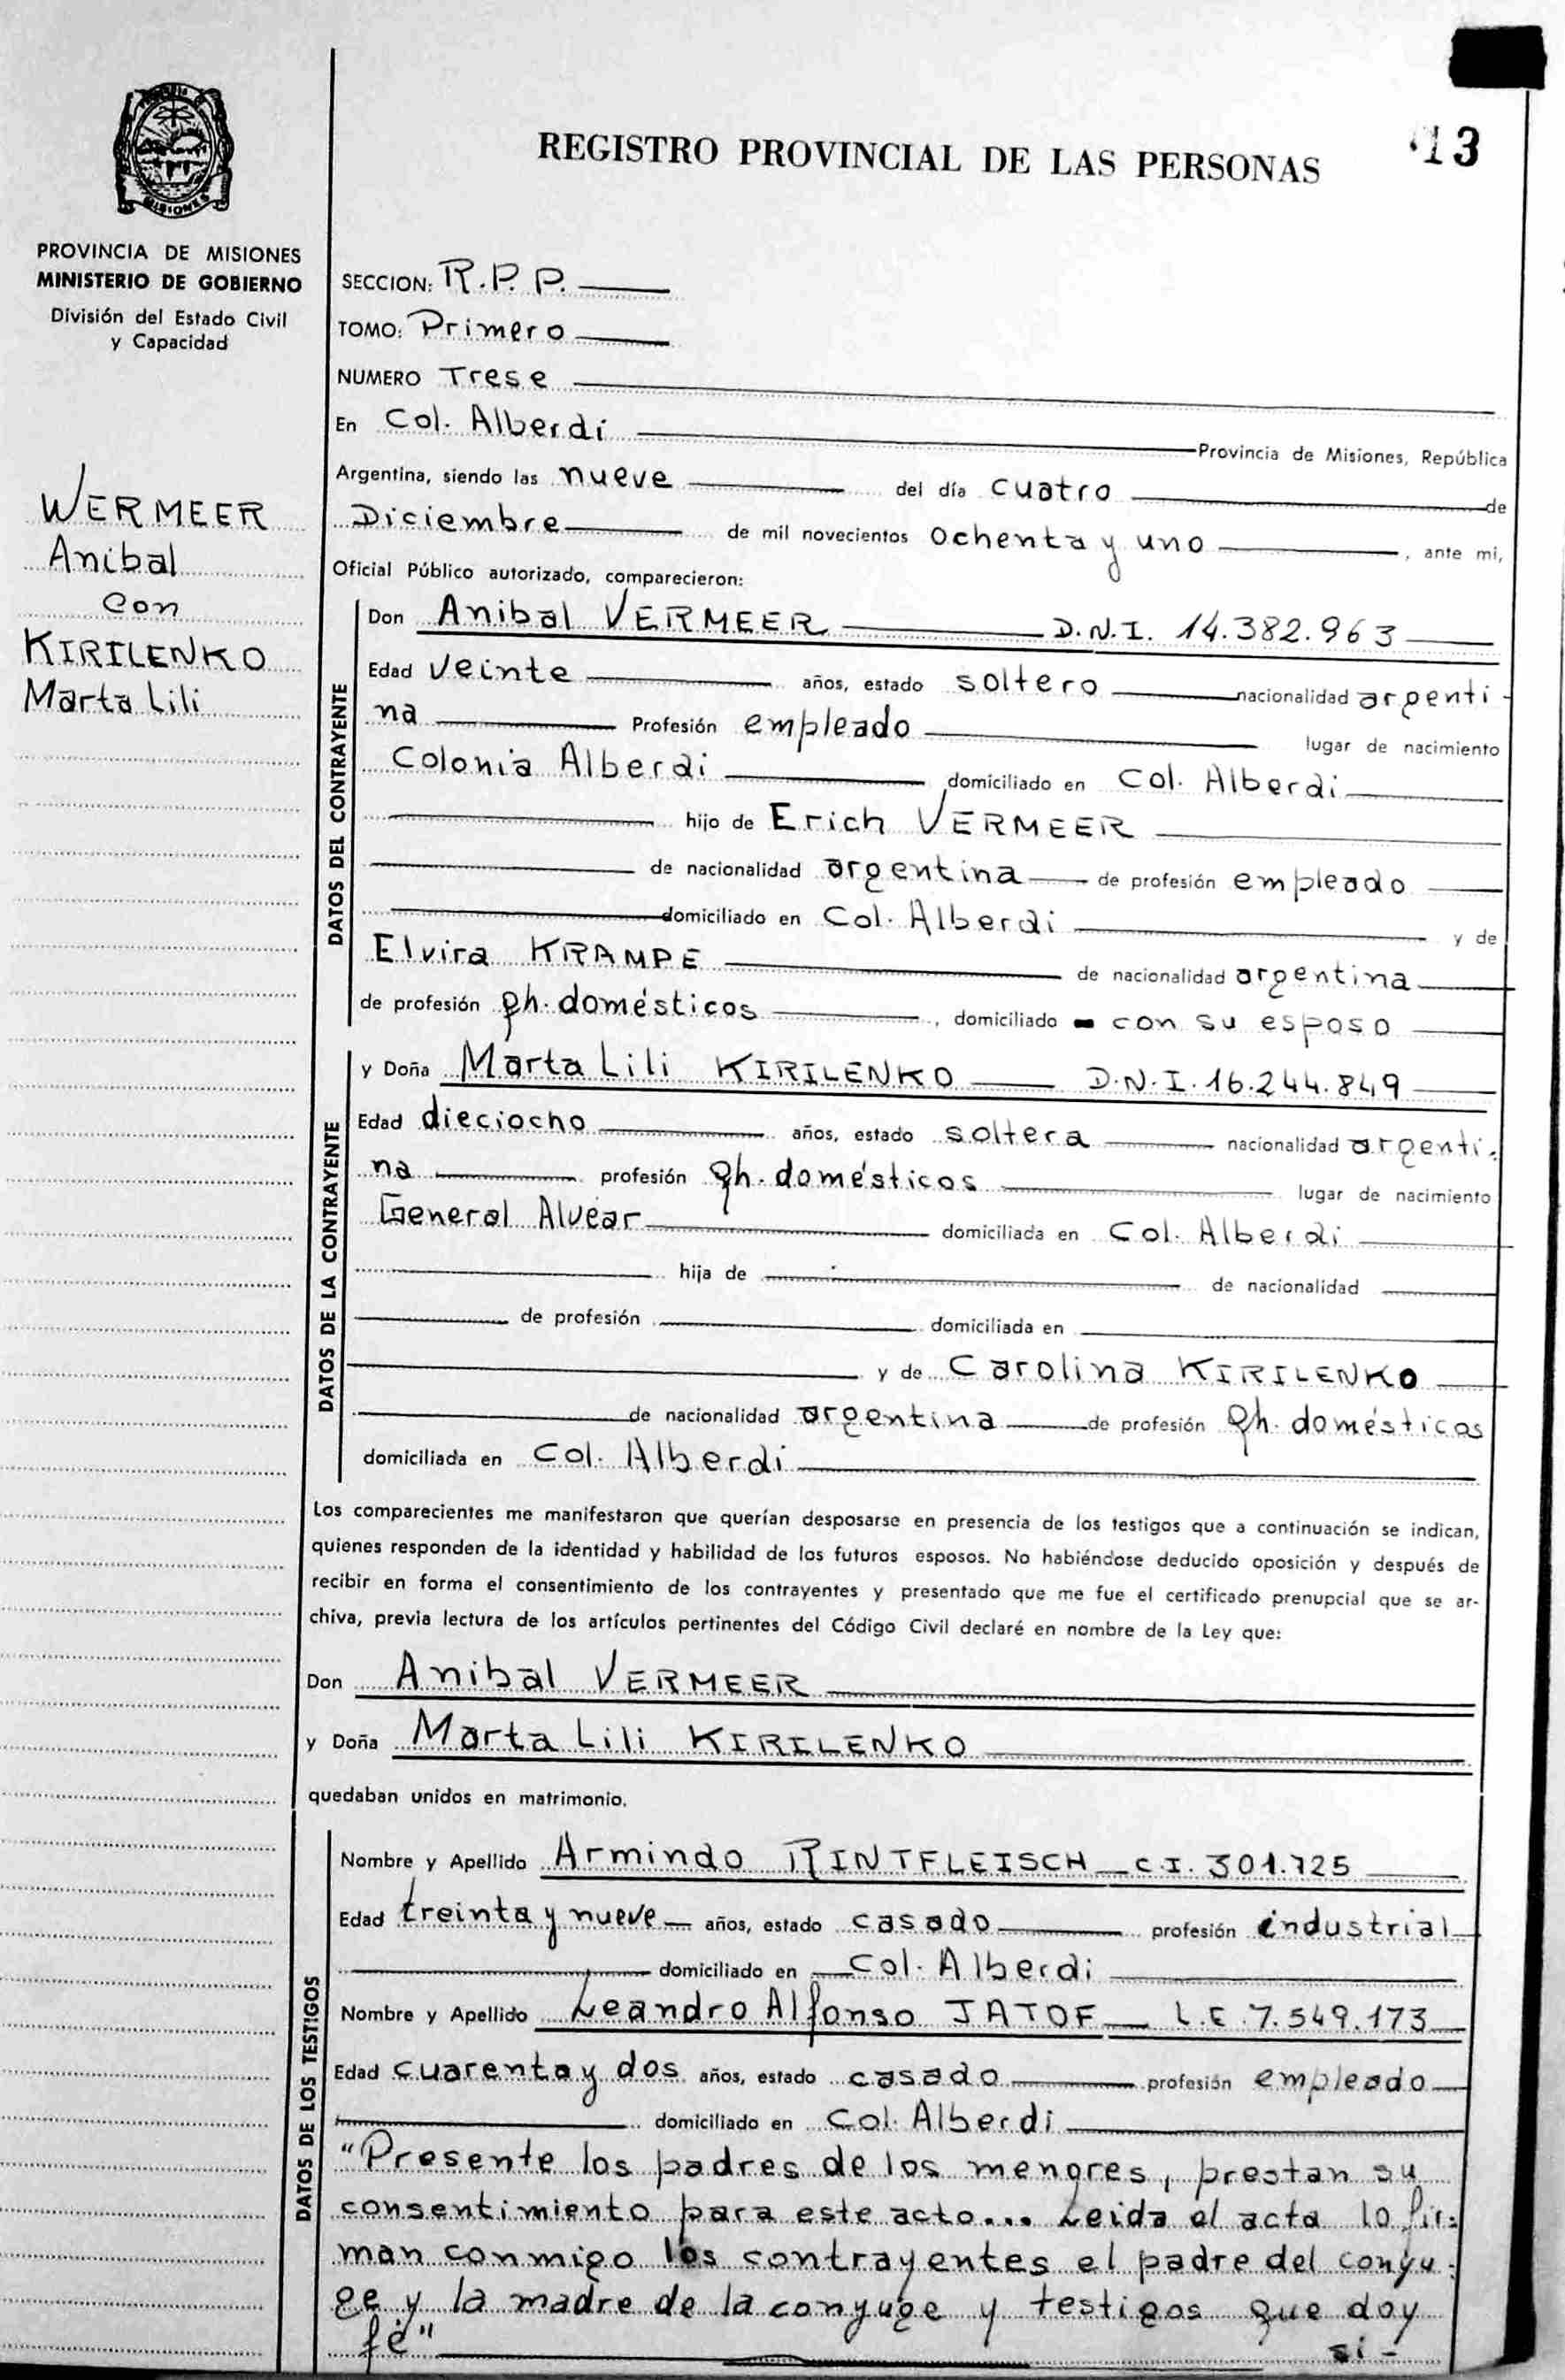 REGISTRO PROVINCIAL DE LAS PERSONAS
13
MISIONES
PROVINCIA DE MISIONES
MINISTERIO DE GOBIERNO
División del Estado Civil
y Capacidad
WERMEER
Anibal
Con
KIRILENKO
Marta Lili
SECCION: R.P.P.
TOMO: Primero
NUMERO Trese
En Col. Alberdi Provincia de Misiones, República
Argentina, siendo las nueve del día cuatro de
Diciembre de mil novecientos Ochenta y uno, ante mi,
Oficial Público autorizado, comparecieron:
DATOS DEL CONTRAYENTE
Don Anibal VERMEER D.N.I. 14.382.963
Edad Veinte años, estado soltero nacionalidad argenti-
na Profesión empleado lugar de nacimiento
Colonia Alberdi domiciliado en Col. Alberdi
hijo de Erich VERMEER
de nacionalidad argentina de profesión empleado
domiciliado en Col. Alberdi y de
Elvira KRAMPE de nacionalidad argentina
de profesión qh. domésticos, domiciliado con su esposo
DATOS DE LA CONTRAYENTE
y Doña Marta Lili KIRILENKO D.N.I. 16.244.849
Edad dieciocho años, estado soltera nacionalidad argenti-
na profesión qh. domésticos lugar de nacimiento
General Alvear domiciliada en Col. Alberdi
hija de de nacionalidad
de profesión domiciliada en
y de Carolina KIRILENKO
de nacionalidad argentina de profesión qh. domésticos
domiciliada en Col. Alberdi
Los comparecientes me manifestaron que querían desposarse en presencia de los testigos que a continuación se indican,
quienes responden de la identidad y habilidad de los futuros esposos. No habiéndose deducido oposición y después de
recibir en forma el consentimiento de los contrayentes y presentado que me fue el certificado prenupcial que se ar-
chiva, previa lectura de los artículos pertinentes del Código Civil declaré en nombre de la Ley que:
Don Anibal VERMEER
y Doña Marta Lili KIRILENKO
quedaban unidos en matrimonio.
DATOS DE LOS TESTIGOS
Nombre y Apellido Armindo RINTFLEISCH C.I. 301.725
Edad treinta y nueve años, estado casado profesión industrial
domiciliado en Col. Alberdi
Nombre y Apellido Leandro Alfonso JATOF L.E. 7.549.173
Edad cuarenta y dos años, estado casado profesión empleado
domiciliado en Col. Alberdi
"Presente los padres de los menores, prestan su
consentimiento para este acto... Leida el acta lo fir-
man conmigo los contrayentes el padre del conyu-
ge y la madre de la conyuge y testigos que doy
fé"
si -